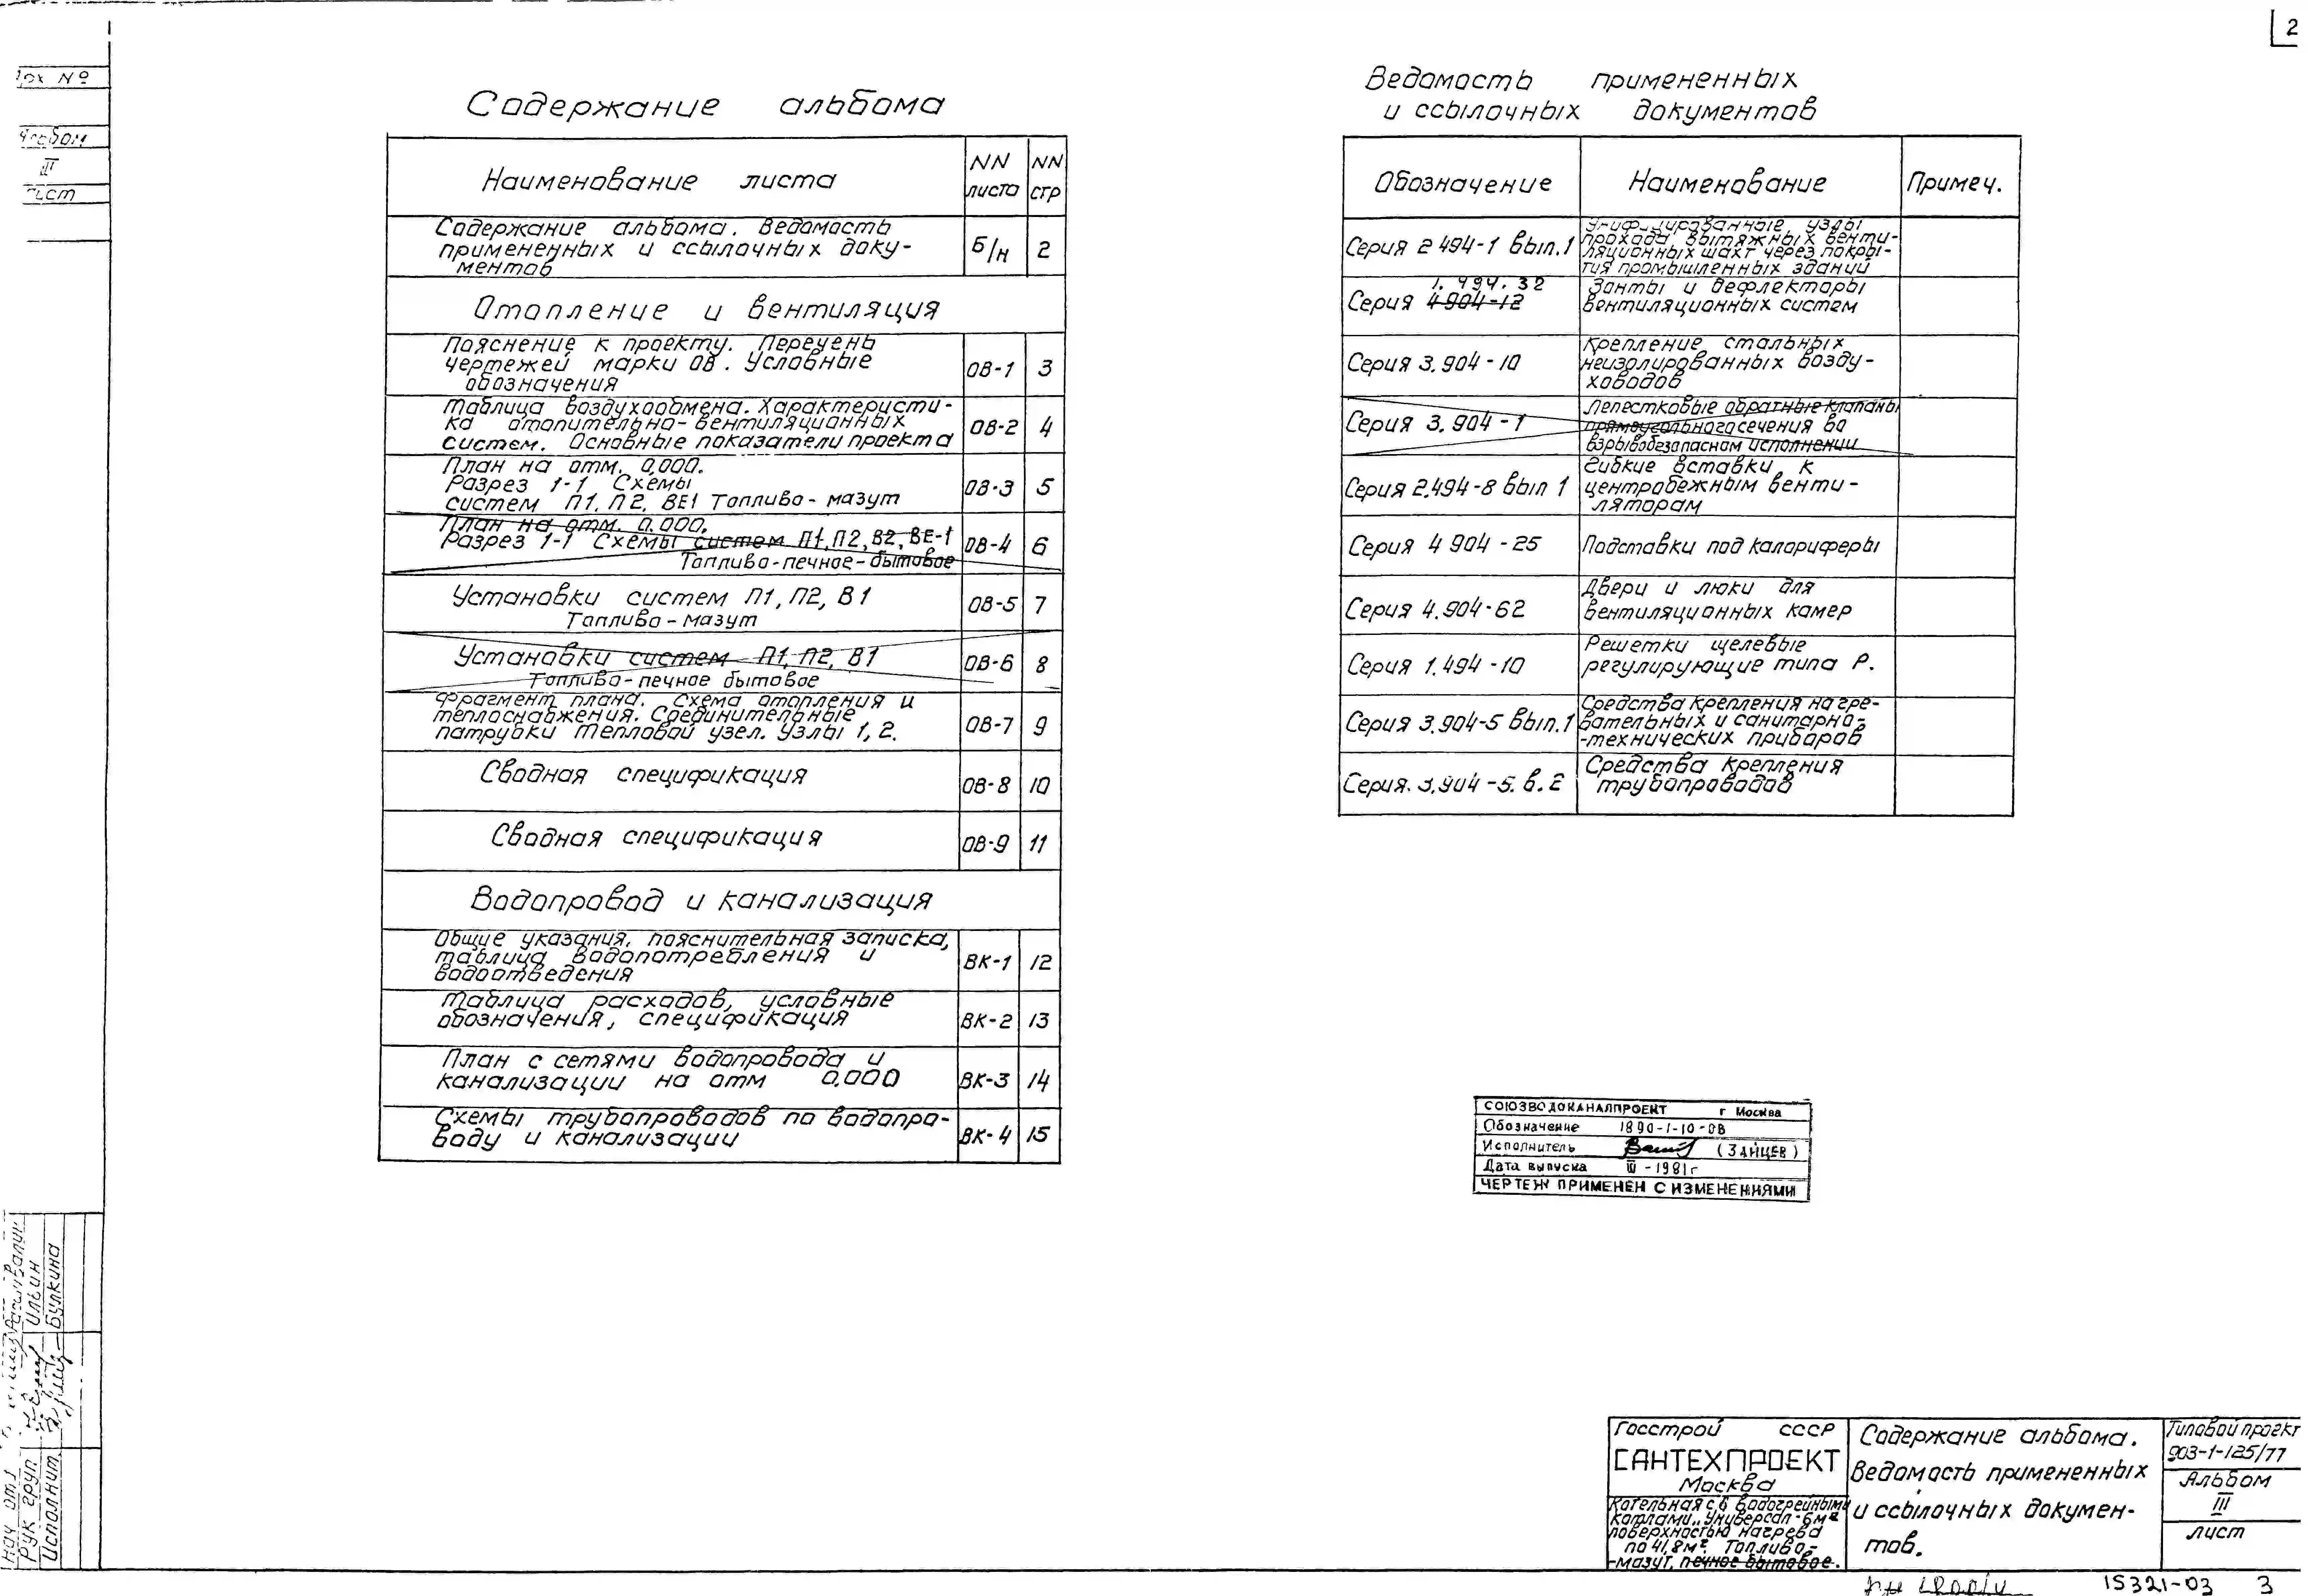 2
Nº
Альбом
III
Лист
Содержание альбома
Наименование листа
NN листа
NN стр
Содержание альбома. Ведомость
примененных и ссылочных доку-
ментов
Б/н
2
Отопление и вентиляция
Пояснение к проекту. Перечень
чертежей марки ОВ. Условные
обозначения
ОВ-1
3
Таблица воздухообмена. Характеристи-
ка отопительно-вентиляционных
систем. Основные показатели проекта
ОВ-2
4
План на отм. 0,000.
Разрез 1-1 Схемы
систем П1, П2, ВЕ1 Топливо - мазут
ОВ-3
5
План на отм. 0.000.
Разрез 1-1 Схемы систем П1, П2, В2, ВЕ-1
Топливо-печное-бытовое
ОВ-4
6
Установки систем П1, П2, В1
Топливо - мазут
ОВ-5
7
Установки систем П1, П2, В1
Топливо-печное бытовое
ОВ-6
8
Фрагмент плана. Схема отопления и
теплоснабжения. Соединительные
патрубки Тепловой узел. Узлы 1, 2.
ОВ-7
9
Сводная спецификация
ОВ-8
10
Сводная спецификация
ОВ-9
11
Водопровод и канализация
Общие указания, пояснительная записка,
таблица водопотребления и
водоотведения
ВК-1
12
Таблица расходов, условные
обозначения, спецификация
ВК-2
13
План с сетями водопровода и
канализации на отм 0.000
ВК-3
14
Схемы трубопроводов по водопро-
воду и канализации
ВК-4
15
Ведомость примененных
и ссылочных документов
Обозначение
Наименование
Примеч.
Серия 2 494-1 вып.1
Унифицированные узлы
прохода вытяжных венти-
ляционных шахт через покры-
тия промышленных зданий
1. 494. 32
Серия 4-904-12
Зонты и дефлекторы
вентиляционных систем
Серия 3.904-10
Крепление стальных
неизолированных возду-
ховодов
Серия 3.904-1
Лепестковые обратные клапаны
прямоугольного сечения во
взрывобезопасном исполнении
Серия 2.494-8 вып 1
Гибкие вставки к
центробежным венти-
ляторам
Серия 4 904-25
Подставки под калориферы
Серия 4.904-62
Двери и люки для
вентиляционных камер
Серия 1.494-10
Решетки щелевые
регулирующие типа Р.
Серия 3.904-5 вып.1
Средства крепления нагре-
вательных и санитарно-
-технических приборов
Серия. 3.904-5. в. 2
Средства крепления
трубопроводов
СОЮЗВОДОКАНАЛПРОЕКТ г Москва
Обозначение 1890-1-10-ОВ
Исполнитель (ЗАЙЦЕВ)
Дата выпуска III-1981г
ЧЕРТЕЖ ПРИМЕНЕН С ИЗМЕНЕНИЯМИ
Нач отд
Рук груп Ильин
Исполнит. Булкина
Госстрой СССР
САНТЕХПРОЕКТ
Москва
Котельная с 6 водогрейными
котлами „Универсал-6м"
поверхностью нагрева
по 41,8м². Топливо-
-мазут, печное бытовое.
Содержание альбома.
Ведомость примененных
и ссылочных докумен-
тов.
Типовой проект
903-1-125/77
Альбом
III
лист
15321-03 3